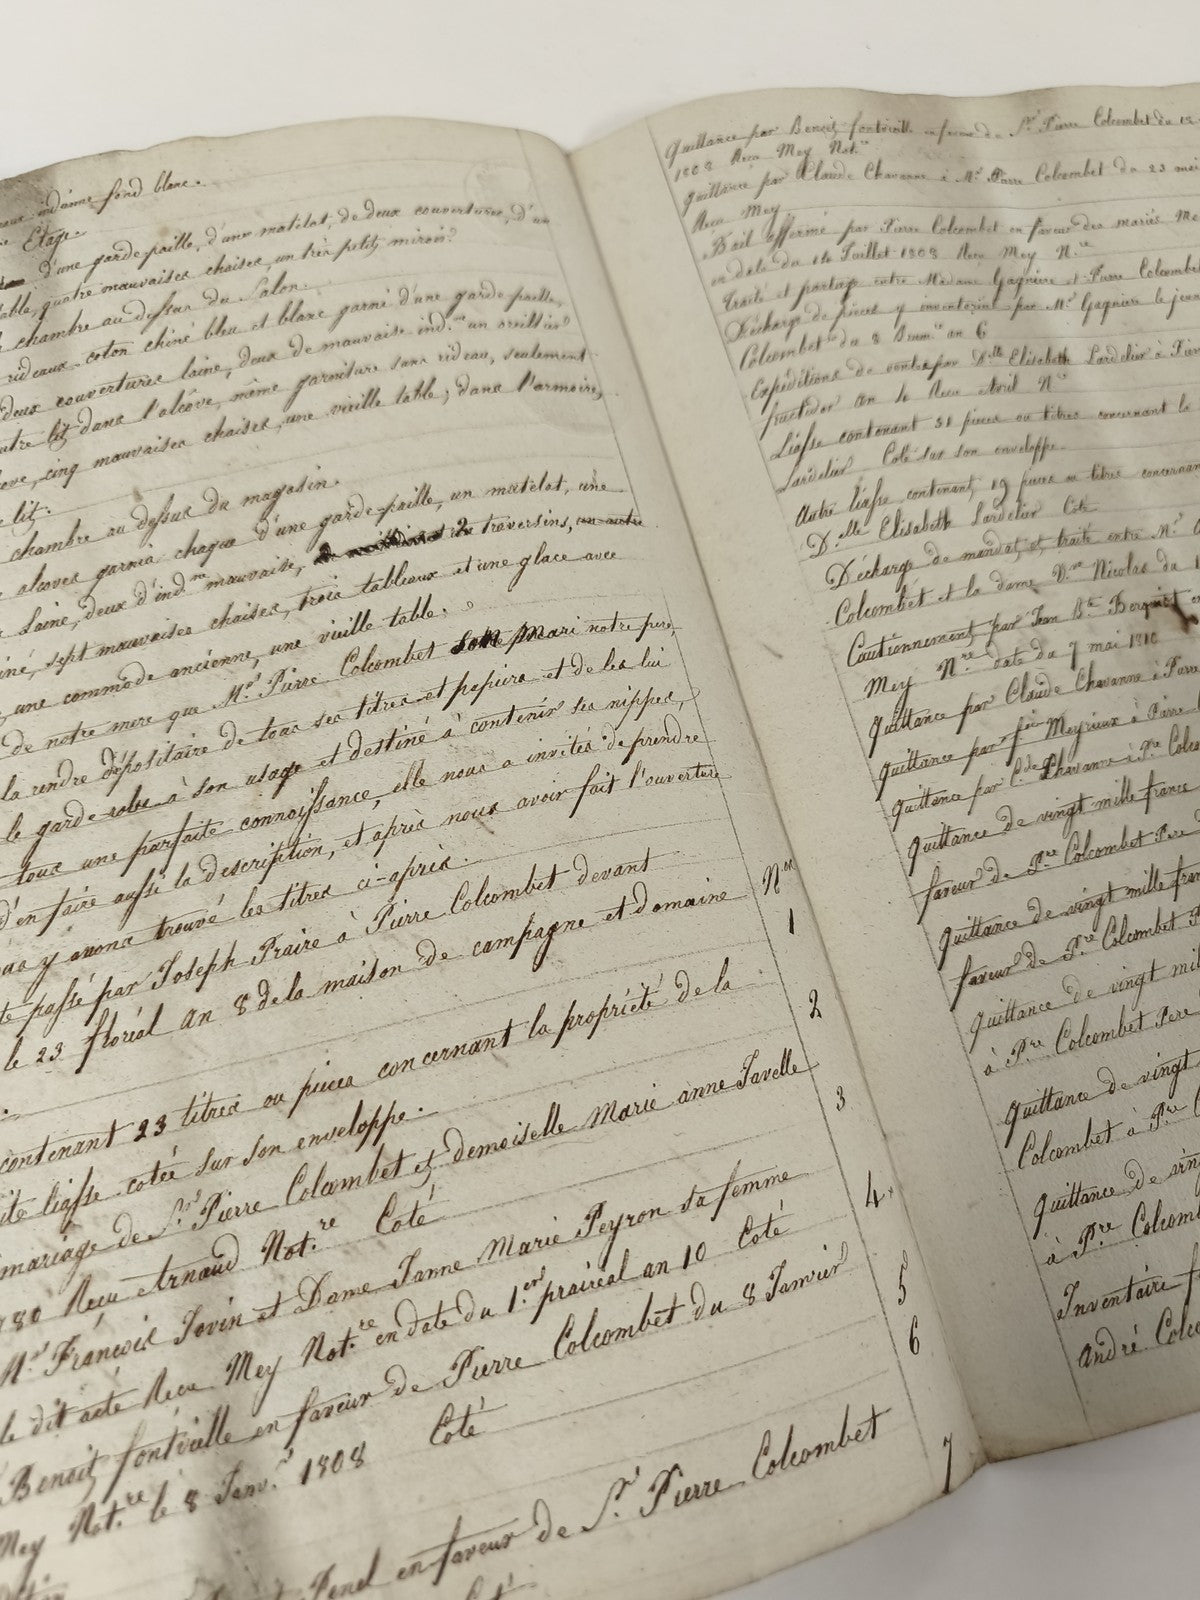 indienne fond blanc.
Etage.
d'une garde paille, d'un matelat, de deux couvertures, d'un
table, quatre mauvaises chaises, un très petit miroir.
chambre au dessus du Salon.
rideaux coton chiné bleu et blanc garni d'une garde paille,
deux couvertures laine, deux de mauvaise ind.ne un vieillier
autre lit dans l'alcôve, même garniture sans rideau, seulement
cinq mauvaises chaises, une vieille table; dans l'armoire,
lit.
chambre au dessus du magasin.
alcoves garnis chaque d'une garde paille, un matelat, une
laine, deux d'ind.ne mauvaise, 2 traversins, un autre
sept mauvaises chaises, trois tableaux et une glace avec
une commode ancienne, une vieille table.
de notre mere que M.r Pierre Colcombet son mari notre pere,
la rendre dépositaire de tous ses titres et papiers et de les lui
le garde robe à son usage et destiné à contenir ses nippes,
tous une parfaite connoissance, elle nous a invités de prendre
d'en faire aussi la description, et après nous avoir fait l'ouverture
y avons trouvé les titres ci-après. N.os
passé par Joseph Praire à Pierre Colcombet devant
le 23 floréal an 8 de la maison de campagne et domaine 1
contenant 23 titres ou pieces concernant la propriété de la
liasse cotée sur son enveloppe. 2
mariage de S.r Pierre Colcombet et demoiselle Marie anne Javelle
Reçu Arnaud Not.re Coté 3
M.r François Jovin et Dame Janne Marie Peyron sa femme
le dit acte Reçu Mey Not.re en date du 1.er prairéal an 10 Coté 4
Benoit fontvieille en faveur de Pierre Colcombet du 8 Janvier 5
Mey Not.re le 8 Janv.r 1808 Coté 6
en faveur de S.r Pierre Colcombet 7
Quittance par Benoit fontvieille en faveur de S.r Pierre Colcombet du 12
1808 Reçu Mey Not.re
Quittance par Claude Chavanne à M.r Pierre Colcombet du 23 mai
Reçu Mey
Bail affermé par Pierre Colcombet en faveur des mariés
en date du 14 Juillet 1808 Reçu Mey N.re
Traité et partage entre Madame Gagnière et Pierre Colcombet
Décharge de pièces y inventorié par M.r Gagnière le jeune
Colcombet du 8 Brum.re an 6
Expéditions de ventes par D.lle Elisabeth Lardelier à Pierre
fructidor an 4 Reçu Avril N.re
Liasse contenant 31 pieces ou titres concernant le
Lardelier Coté sur son enveloppe.
Autre liasse contenant 19 pieces ou titres concernant
D.elle Elisabeth Lardelier Coté
Décharge de mandat et traité entre M.r
Colcombet et la dame V.ve Nicolas du
Cautionnement par Jean B.te
Mey N.re date du 7 mai 1810
Quittance par Claude Chavanne à Pierre
Quittance par feu Meyrieux à Pierre
Quittance par C.de Chavanne à P.re
Quittance de vingt mille francs
faveur de P.re Colcombet Pere
Quittance de vingt mille
faveur de P.re Colcombet
Quittance de vingt
à P.re Colcombet Pere
Quittance de vingt
Colcombet à P.re
Quittance de
à P.re
Inventaire
André